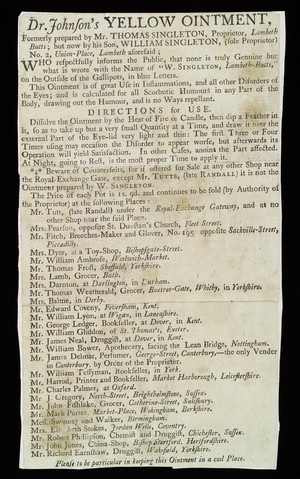 Dr. Johnson's YELLOW OINTMENT,
Formerly prepared by Mr. THOMAS SINGLETON, Proprietor, Lambeth
Butts; but now by his Son, WILLIAM SINGLETON, (sole Proprietor)
No. 2, Union-Place, Lambeth aforesaid;
WHO respectfully informs the Public, that none is truly Genuine but
what is wrote with the Name of "W. SINGLETON, Lambeth-Butts,"
on the Outside of the Gallipots, in blue Letters.
This Ointment is of great Use in Inflammations, and all other Disorders of
the Eyes; and is calculated for all Scorbutic Humours in any Part of the
Body, drawing out the Humour, and is no Ways repellant.
DIRECTIONS for USE.
Dissolve the Ointment by the Heat of Fire or Candle, then dip a Feather in
it, so as to take up but a very small Quantity at a Time, and draw it over the
external Part of the Eye-lid very light and thin: The first Three or Four
Times using may occasion the Disorder to appear worse, but afterwards its
Operation will yield Satisfaction. In other Cases, anoint the Part affected.
At Night, going to Rest, is the most proper Time to apply it.
*⁎* Beware of Counterfeits, for if offered for Sale at any other Shop near
the Royal-Exchange Gate, except Mr. TUTTS, (late RANDALL) it is not the
Ointment prepared by W. SINGLETON.
The Price of each Pot is 1s. 9d. and continues to be sold (by Authority of
the Proprietor) at the following Places:
Mr. Tutt, (late Randall) under the Royal-Exchange Gateway, and at no
other Shop near the said Place.
Mrs. Pearson, opposite St. Dunstan's Church, Fleet-Street.
Mr. Fitch, Breeches-Maker and Glover, No. 195 opposite Sackville-Street,
Piccadilly.
Mrs. Dyer, at a Toy-Shop, Bishopsgate-Street.
Mr. William Ambrose, Woolwich-Market.
Mr. Thomas Frost, Sheffield, Yorkshire.
Mrs. Lamb, Grocer, Bath.
Mrs. Darnton, at Darlington, in Durham.
Mr. Thomas Weatherald, Grocer, Baxter-Gate, Whitby, in Yorkshire.
Mrs. Balme, in Derby.
Mr. Edward Coveny, Feversham, Kent.
Mr. William Lyon, at Wigan, in Lancashire.
Mr. George Ledger, Bookseller, at Dover, in Kent.
Mr. William Gliddon, of St. Thomas's, Exeter.
Mr. James Neal, Druggist, at Dover, in Kent.
Mr. William Bower, Apothecary, facing the Lean Bridge, Nottingham.
Mr. James Delmar, Perfumer, George-Street, Canterbury,—the only Vender
in Canterbury, by Order of the Proprietor.
Mr. William Tessyman, Bookseller, in York.
Mr. Harrod, Printer and Bookseller, Market Harborough, Leicestershire.
Mr. Charles Palmer, at Oxford.
Mr. J. Gregory, North-Street, Brighthelmstone, Sussex.
Mr. John Fishlake, Grocer, Catherine-Street, Salisbury.
Mr. Mark Porter, Market-Place, Wokingham, Berkshire.
Mess. Swinney and Walker, Birmingham.
Mrs. Stokes, Jordan Well, Coventry.
Mr. Robert Phillipson, Chemist and Druggist, Chichester, Sussex.
Mr. John Jones, China-Shop, Bishop Stortford, Hertfordshire.
Mr. Richard Earnshaw, Druggist, Wakefield, Yorkshire.
Please to be particular in keeping this Ointment in a cool Place.